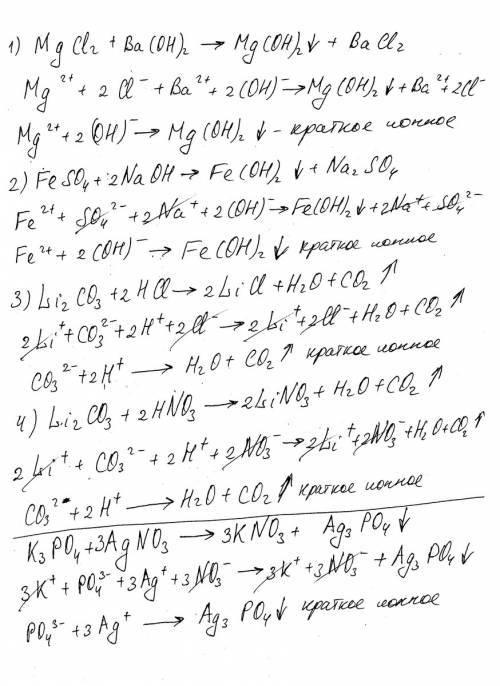 1) MgCl₂ + Ba(OH)₂ → Mg(OH)₂↓ + BaCl₂
Mg²⁺ + 2Cl⁻ + Ba²⁺ + 2(OH)⁻ → Mg(OH)₂↓ + Ba²⁺ + 2Cl⁻
Mg²⁺ + 2(OH)⁻ → Mg(OH)₂↓ - краткое ионное
2) FeSO₄ + 2NaOH → Fe(OH)₂↓ + Na₂SO₄
Fe²⁺ + SO₄²⁻ + 2Na⁺ + 2(OH)⁻ → Fe(OH)₂↓ + 2Na⁺ + SO₄²⁻
Fe²⁺ + 2(OH)⁻ → Fe(OH)₂↓ краткое ионное
3) Li₂CO₃ + 2HCl → 2LiCl + H₂O + CO₂↑
2Li⁺ + CO₃²⁻ + 2H⁺ + 2Cl⁻ → 2Li⁺ + 2Cl⁻ + H₂O + CO₂↑
CO₃²⁻ + 2H⁺ → H₂O + CO₂↑ краткое ионное
4) Li₂CO₃ + 2HNO₃ → 2LiNO₃ + H₂O + CO₂↑
2Li⁺ + CO₃²⁻ + 2H⁺ + 2NO₃⁻ → 2Li⁺ + 2NO₃⁻ + H₂O + CO₂↑
CO₃²⁻ + 2H⁺ → H₂O + CO₂↑ краткое ионное
K₃PO₄ + 3AgNO₃ → 3KNO₃ + Ag₃PO₄↓
3K⁺ + PO₄³⁻ + 3Ag⁺ + 3NO₃⁻ → 3K⁺ + 3NO₃⁻ + Ag₃PO₄↓
PO₄³⁻ + 3Ag⁺ → Ag₃PO₄↓ краткое ионное